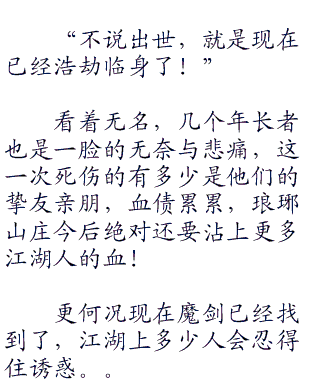 “不说出世，就是现在
已经浩劫临身了！”
看着无名，几个年长者
也是一脸的无奈与悲痛，这
一次死伤的有多少是他们的
挚友亲朋，血债累累，琅琊
山庄今后绝对还要沾上更多
江湖人的血！
更何况现在魔剑已经找
到了，江湖上多少人会忍得
住诱惑。。